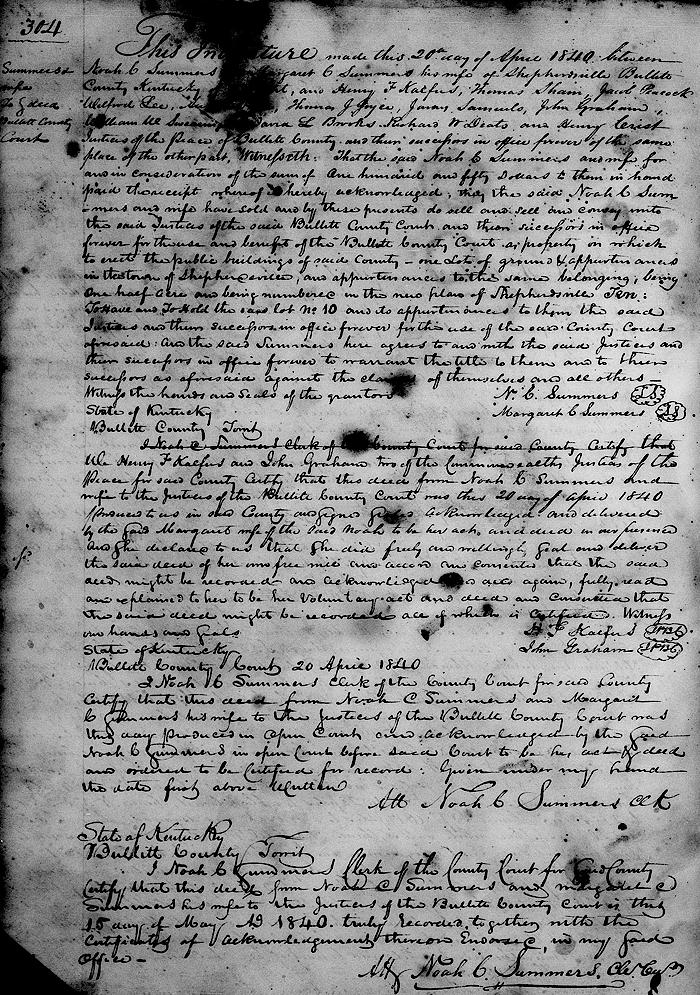 304
Summers &
wife
To } deed
Bullitt County
Court
This Indenture made this 20th day of April 1840 between
Noah C Summers Margaret C Summers his wife of Shepherdsville Bullitt
County Kentucky and Henry F Kalfus, Thomas Shain, Jacob Peacock
Welford Lee, Thomas J. Joyce, James Samuels, John Graham,
William W David L Brooks Richard W Deats and Henry Crist
Justices of the Peace of Bullitt County and their successors in office forever of the same
place of the other part, Witnesseth: That the said Noah C Summers and wife for
and in consideration of the sum of One hundred and fifty Dollars to them in hand
paid the receipt whereof is hereby acknowledged; they the said Noah C Sum
-mers and wife have sold and by these presents do sell and sell and convey unto
the said Justices of the said Bullitt County Court and their successors in office
forever for the use and benefit of the Bullitt County Court as property on which
to erect the public buildings of said County - one Lot of ground & appurtenances
in the town of Shepherdsville, and appurtenances to the same belonging, being
one half acre and being numbered in the new plan of Shepherdsville Ten:
To Have and To Hold the said lot No 10 and its appurtenances to them the said
Justices and their successors in office forever for the use of the said County Court
aforesaid: And the said Summers here agrees to and with the said Justices and
their successors in office forever to warrant the title to them and to their
successors as aforesaid against the claims of themselves and all others
Witness the hands and seals of the grantors N. C. Summers LS
State of Kentucky Margaret C Summers LS
Bullitt County Towit
I Noah C Summers Clerk of the County Court for said County Certify that
We Henry F Kalfus and John Graham two of the Commonwealths Justices of the
Peace for said County Certify that this deed from Noah C Summers and
wife to the Justices of the Bullitt County Court was this 20 day of April 1840
produced to us in said County and signed sealed acknowledged and delivered
by the said Margaret wife of the said Noah to be her act and deed in our presence
And she declared to us that she did freely and willingly, seal and deliver
the said deed of her own free will and accord and consents that the said
deed might be recorded and acknowledged again, fully, read
and explained to her to be her voluntary act and deed and consented that
the said deed might be recorded all of which is certified. Witness
our hands and seals H F Kalfus JPBC
State of Kentucky John Graham JPBC
Bullitt County Court 20 April 1840
I Noah C Summers Clerk of the County Court for said County
Certify that this deed from Noah C Summers and Margaret
C Summers his wife to the Justices of the Bullitt County Court was
this day produced in open Court and acknowledged by the said
Noah C Summers in open Court before said Court to be his act & deed
and ordered to be certified for record: Given under my hand
the date first above written
Att Noah C Summers Clk
State of Kentucky
Bullitt County Towit
I Noah C Summers Clerk of the County Court for said County
Certify that this deed from Noah C Summers and Margaret C
Summers his wife to the Justices of the Bullitt County Court is this
15 day of May AD 1840. truly recorded, together with the
Certificates of acknowledgement thereon Endorsed, in my said
Office -
Att Noah C. Summers. Clk